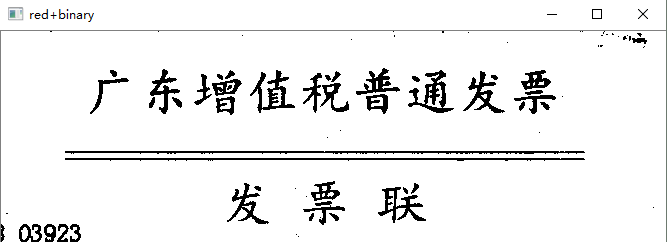 red+binary
广东增值税普通发票
发票联
03923